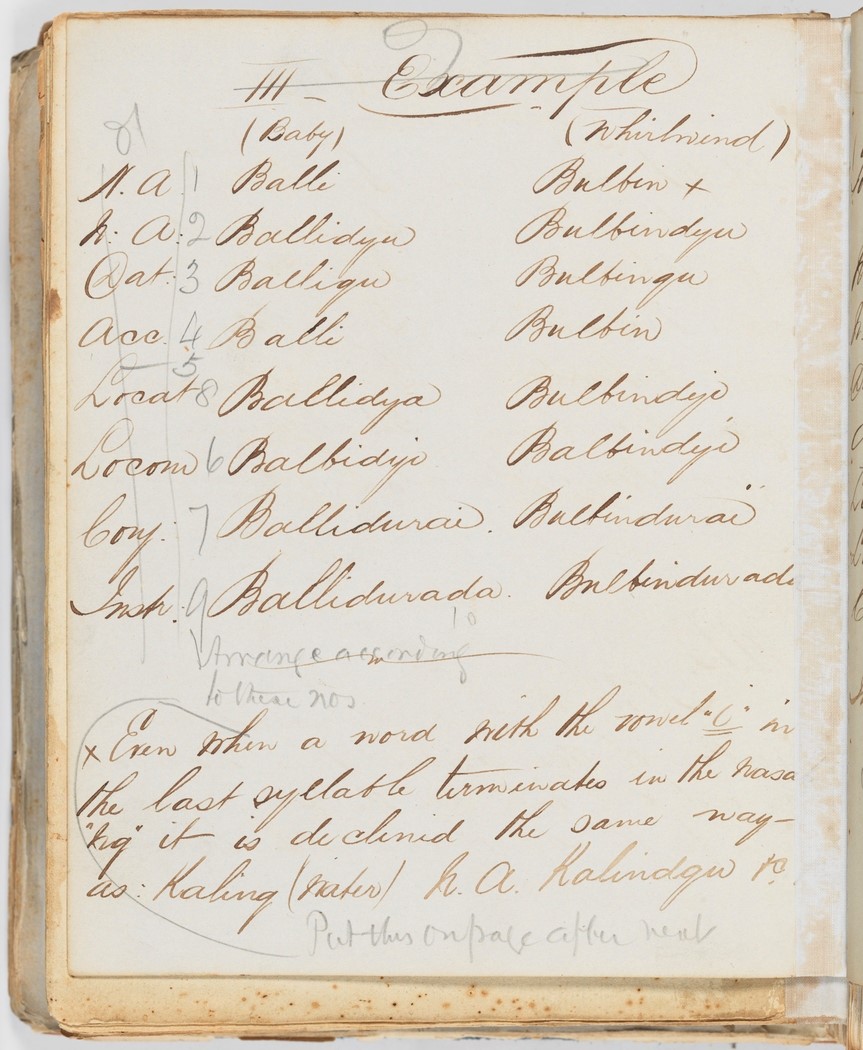 III - Example
(Baby) (Whirlwind)
N. A 1 Balli Bulbin x
N. A. 2 Ballidyu Bulbindyu
Dat. 3 Balligu Bulbingu
Acc. 4 Balli Bulbin
5
Locat 8 Ballidya Bulbindyi
Locom 6 Balbidyi Balbindyi
Conj. 7 Ballidurai. Bulbindurai
Instr. 9 Ballidurada. Bulbindurada
10
Arrange according
to these nos
x Even when a word with the vowel "i" in
the last syllable terminates in the nasa
"ng" it is declined the same way-
as: Kaling (Water) N. A. Kalindyu &c
Put this on page after next